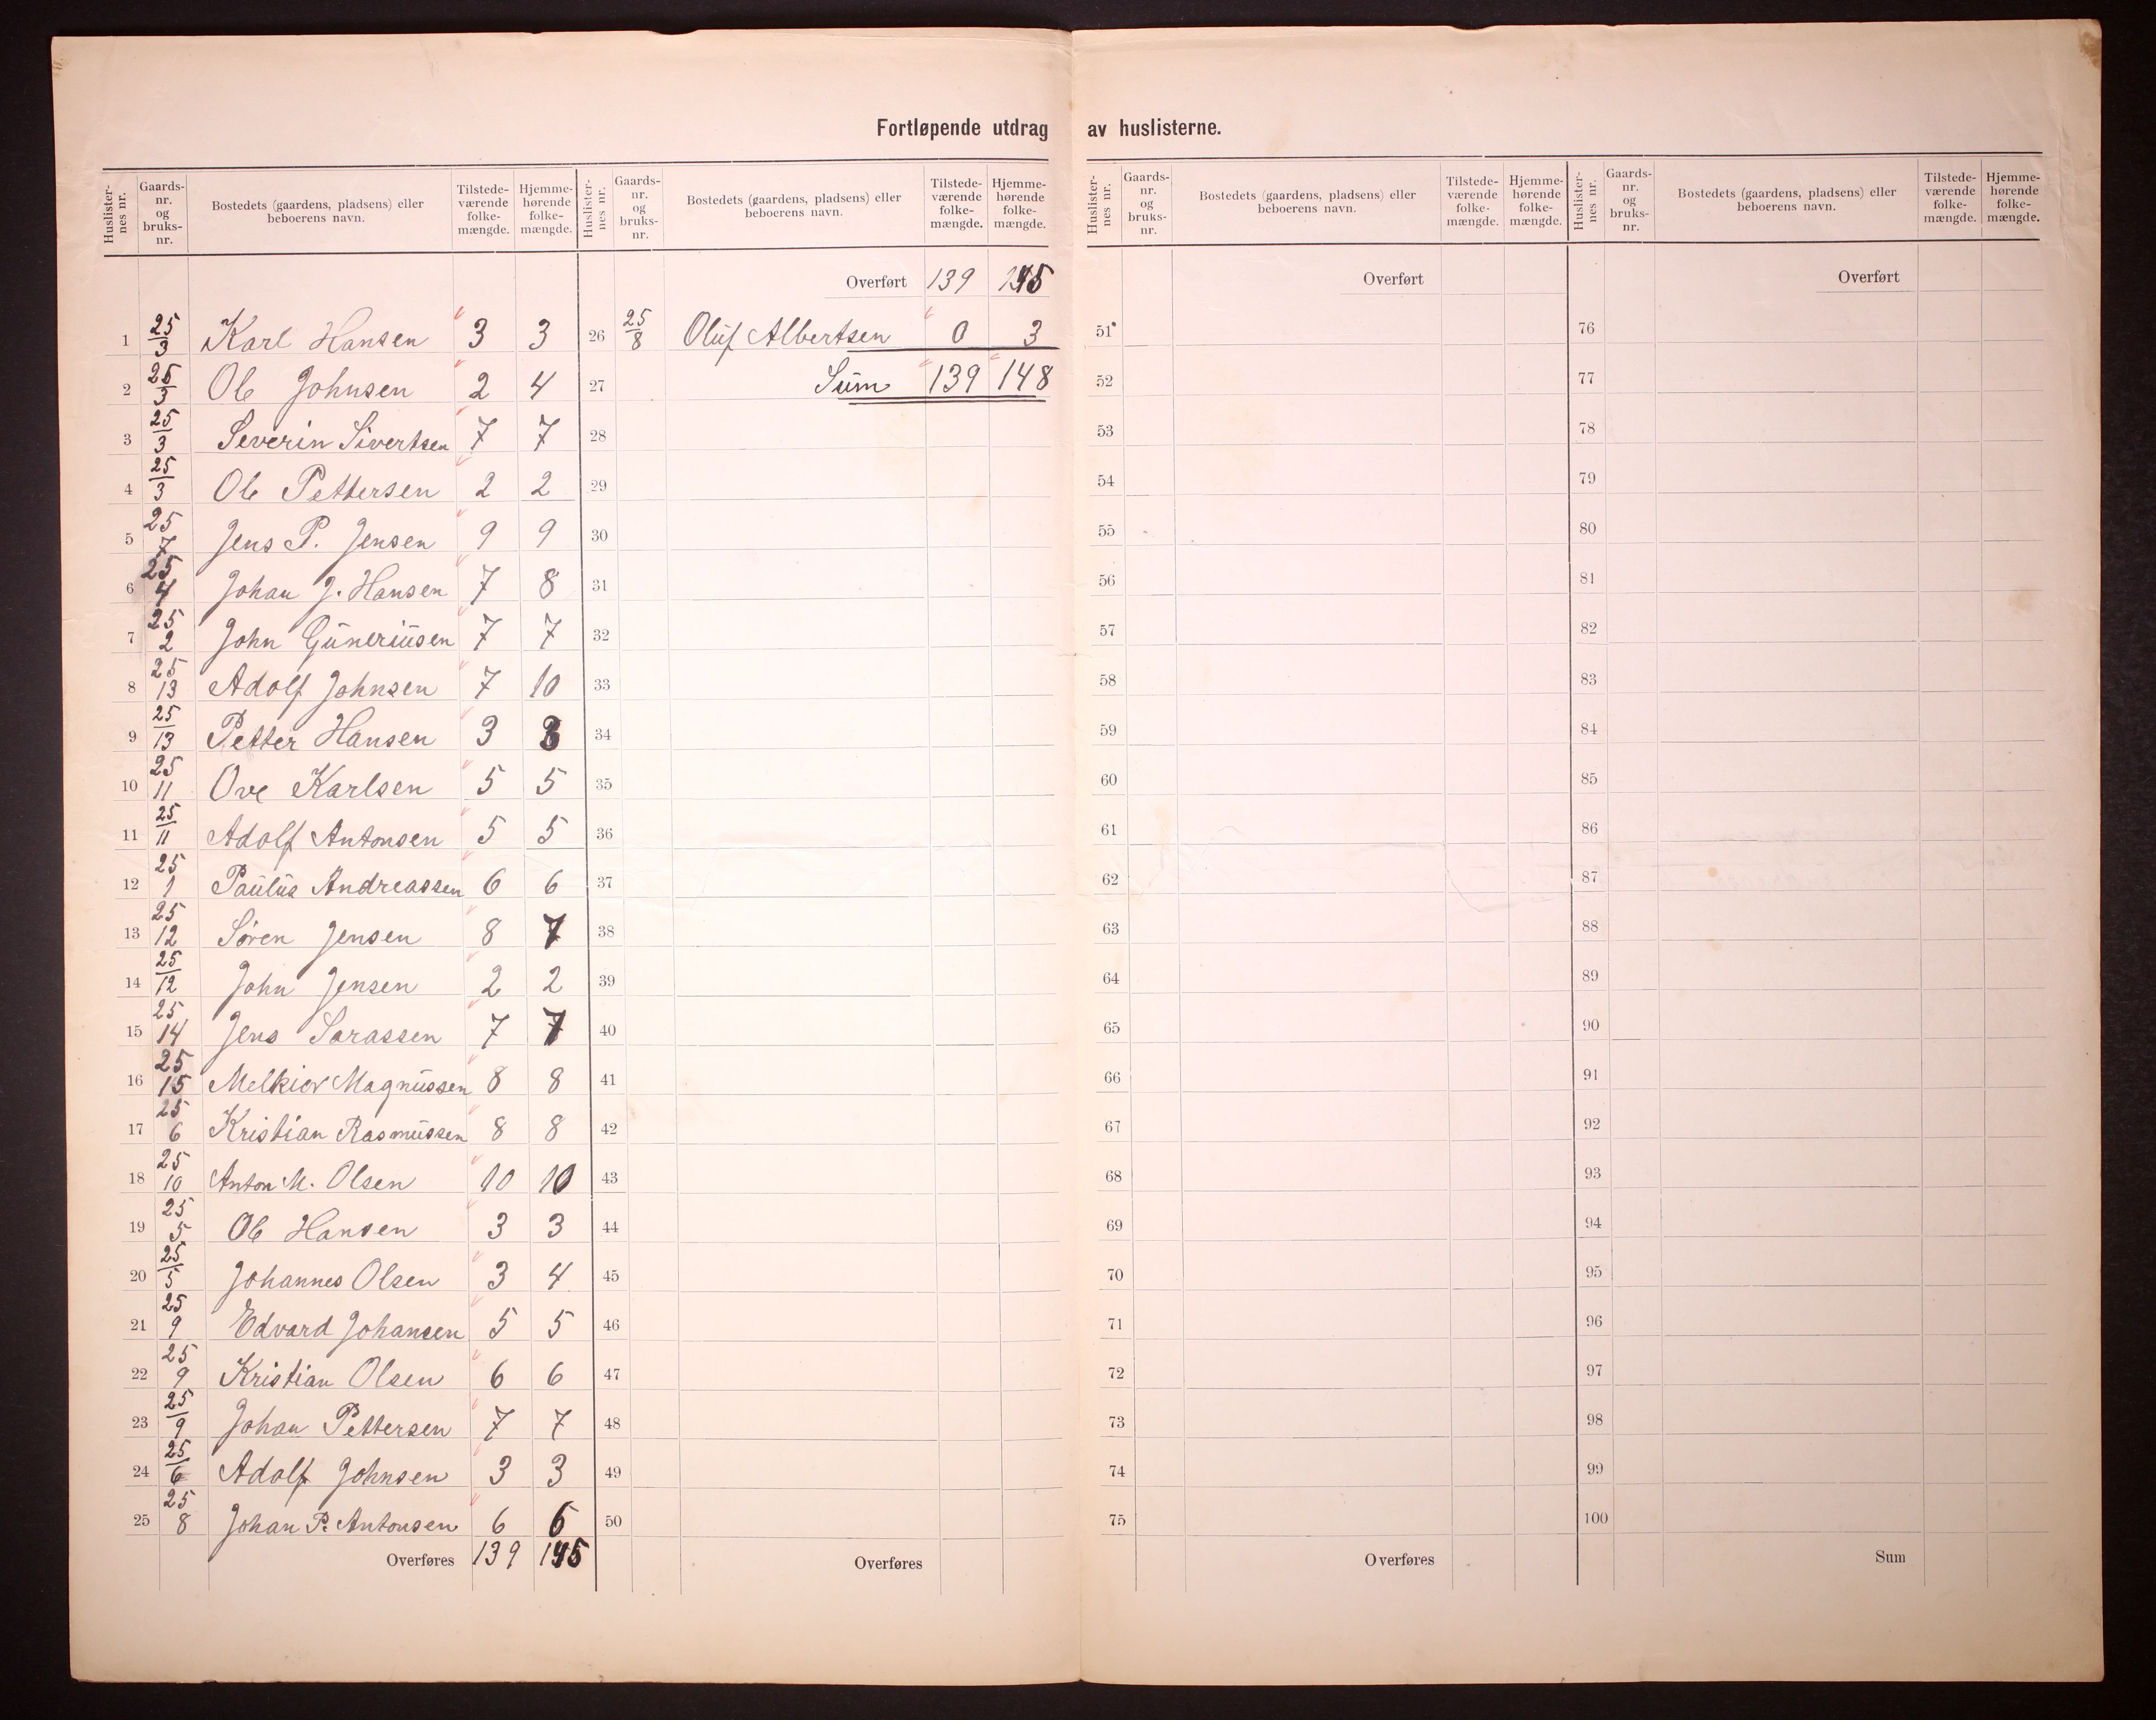 Fortløpende utdrag av huslisterne.
Huslisternes nr. Gaardsnr. og bruksnr. Bostedets (gaardens, pladsens) eller beboerens navn. Tilstedeværende folkemængde. Hjemmehørende folkemængde.
1 25/3 Karl Hansen 3 3
2 25/3 Ole Johnsen 2 4
3 25/3 Severin Sivertsen 7 7
4 25/3 Ole Pettersen 2 2
5 25/7 Jens P. Jensen 9 9
6 25/4 Johan J. Hansen 7 8
7 25/2 John Guneriusen 7 7
8 25/13 Adolf Johnsen 7 10
9 25/13 Petter Hansen 3 3
10 25/11 Ove Karlsen 5 5
11 25/11 Adolf Antonsen 5 5
12 25/1 Paulus Andreassen 6 6
13 25/12 Søren Jensen 8 7
14 25/12 John Jensen 2 2
15 25/14 Jens Sarassen 7 7
16 25/15 Melkior Magnussen 8 8
17 25/6 Kristian Rasmussen 8 8
18 25/10 Anton M. Olsen 10 10
19 25/5 Ole Hansen 3 3
20 25/5 Johannes Olsen 3 4
21 25/9 Edvard Johansen 5 5
22 25/9 Kristian Olsen 6 6
23 25/9 Johan Pettersen 7 7
24 25/6 Adolf Johnsen 3 3
25 25/8 Johan P. Antonsen 6 6
Overføres 139 145
Huslisternes nr. Gaardsnr. og bruksnr. Bostedets (gaardens, pladsens) eller beboerens navn. Tilstedeværende folkemængde. Hjemmehørende folkemængde.
Overført 139 145
26 25/8 Oluf Albertsen 0 3
27 Sum 139 148
28
29
30
31
32
33
34
35
36
37
38
39
40
41
42
43
44
45
46
47
48
49
50
Overføres
Huslisternes nr. Gaardsnr. og bruksnr. Bostedets (gaardens, pladsens) eller beboerens navn. Tilstedeværende folkemængde. Hjemmehørende folkemængde.
Overført
51
52
53
54
55
56
57
58
59
60
61
62
63
64
65
66
67
68
69
70
71
72
73
74
75
Overføres
Huslisternes nr. Gaardsnr. og bruksnr. Bostedets (gaardens, pladsens) eller beboerens navn. Tilstedeværende folkemængde. Hjemmehørende folkemængde.
Overført
76
77
78
79
80
81
82
83
84
85
86
87
88
89
90
91
92
93
94
95
96
97
98
99
100
Sum